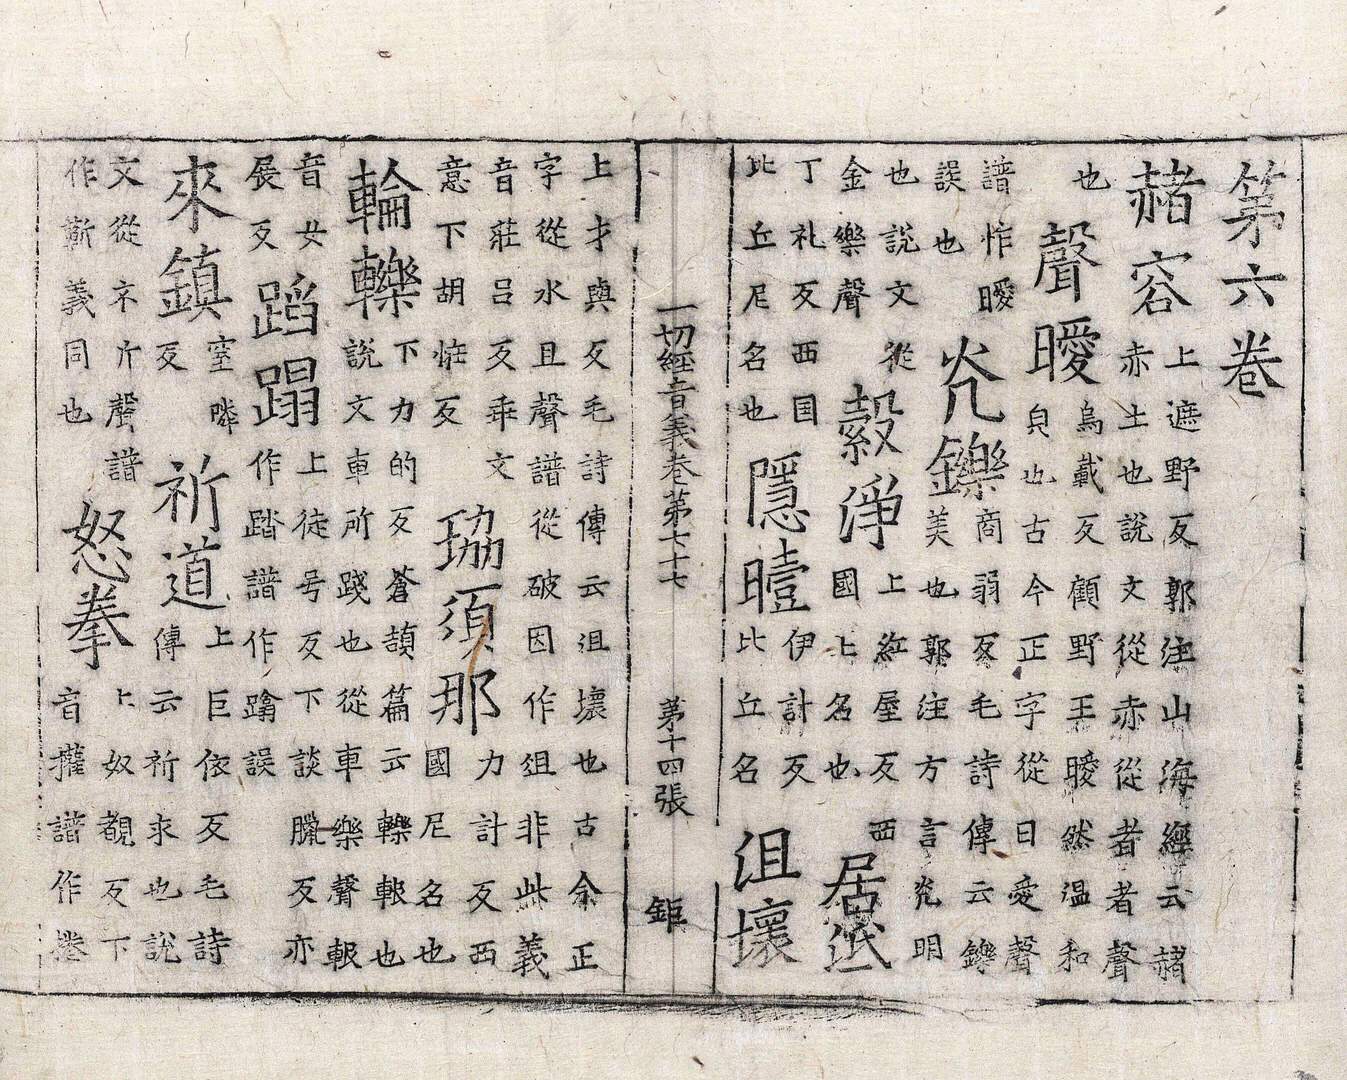 第六卷
赭容上遮野反郭注山海經云赭赤土也説文從赤從者者聲
也聲曖烏載反顧野王曖然温和皃也古今正字從日愛聲
譜作曖誤也灮鑠商弱反毛詩傳云鑠美也郭注方言灮明
也説文從金樂聲縠淨上紅屋反西國上名也居迡
丁礼反西国比丘尼名也隱曀伊計反比丘名沮壞
一切經音義卷第七十七 第十四張 鉅
上才與反毛詩傳云沮壞也古今正字從水且聲譜從破因作俎非此義
音莊呂反乖文意下胡恠反珕須那力計反西國尼名也
輪轢下力的反蒼頡篇云轢䡈也説文車所踐也從車樂聲䡈
音女展反蹈蹋上徒号反下談臘反亦作踏譜作蹹誤
來鎮窒隣反祈道上巨依反毛詩傳云祈求也説
文從示斤聲譜作蘄義同也怒拳上奴覩反下音權譜作捲